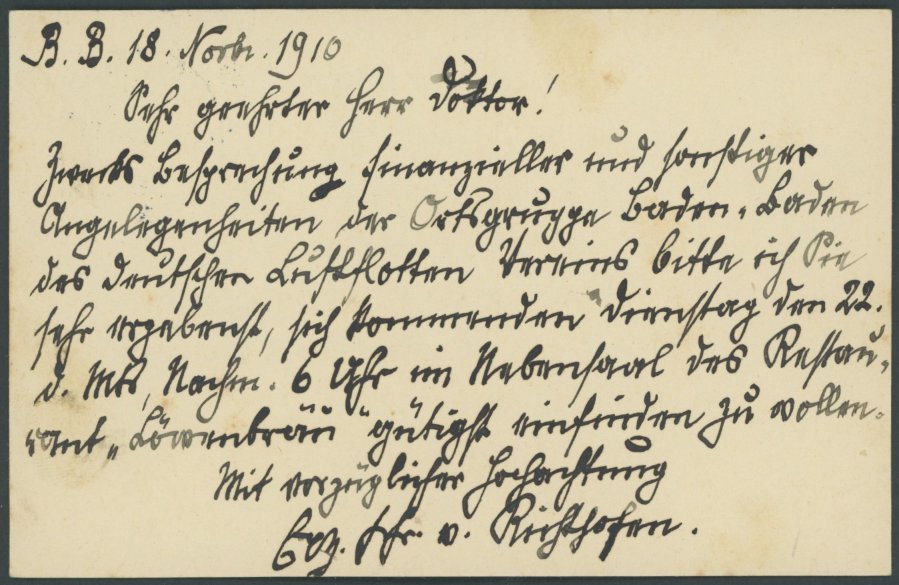 B. B. 18. Novbr. 1910
Sehr geehrter Herr Doktor!
Zwecks Besprechung finanzieller und sonstiger
Angelegenheiten der Ortsgruppe Baden-Baden
des deutschen Luftflotten Vereins bitte ich Sie
sehr ergebenst, sich kommenden Dienstag den 22.
d. Mts, Nachm. 6 Uhr im Nebensaal des Restau-
rant „Löwenbräu“ gütigst einfinden zu wollen.
Mit vorzüglicher Hochachtung
Frhr. v. Richthofen.